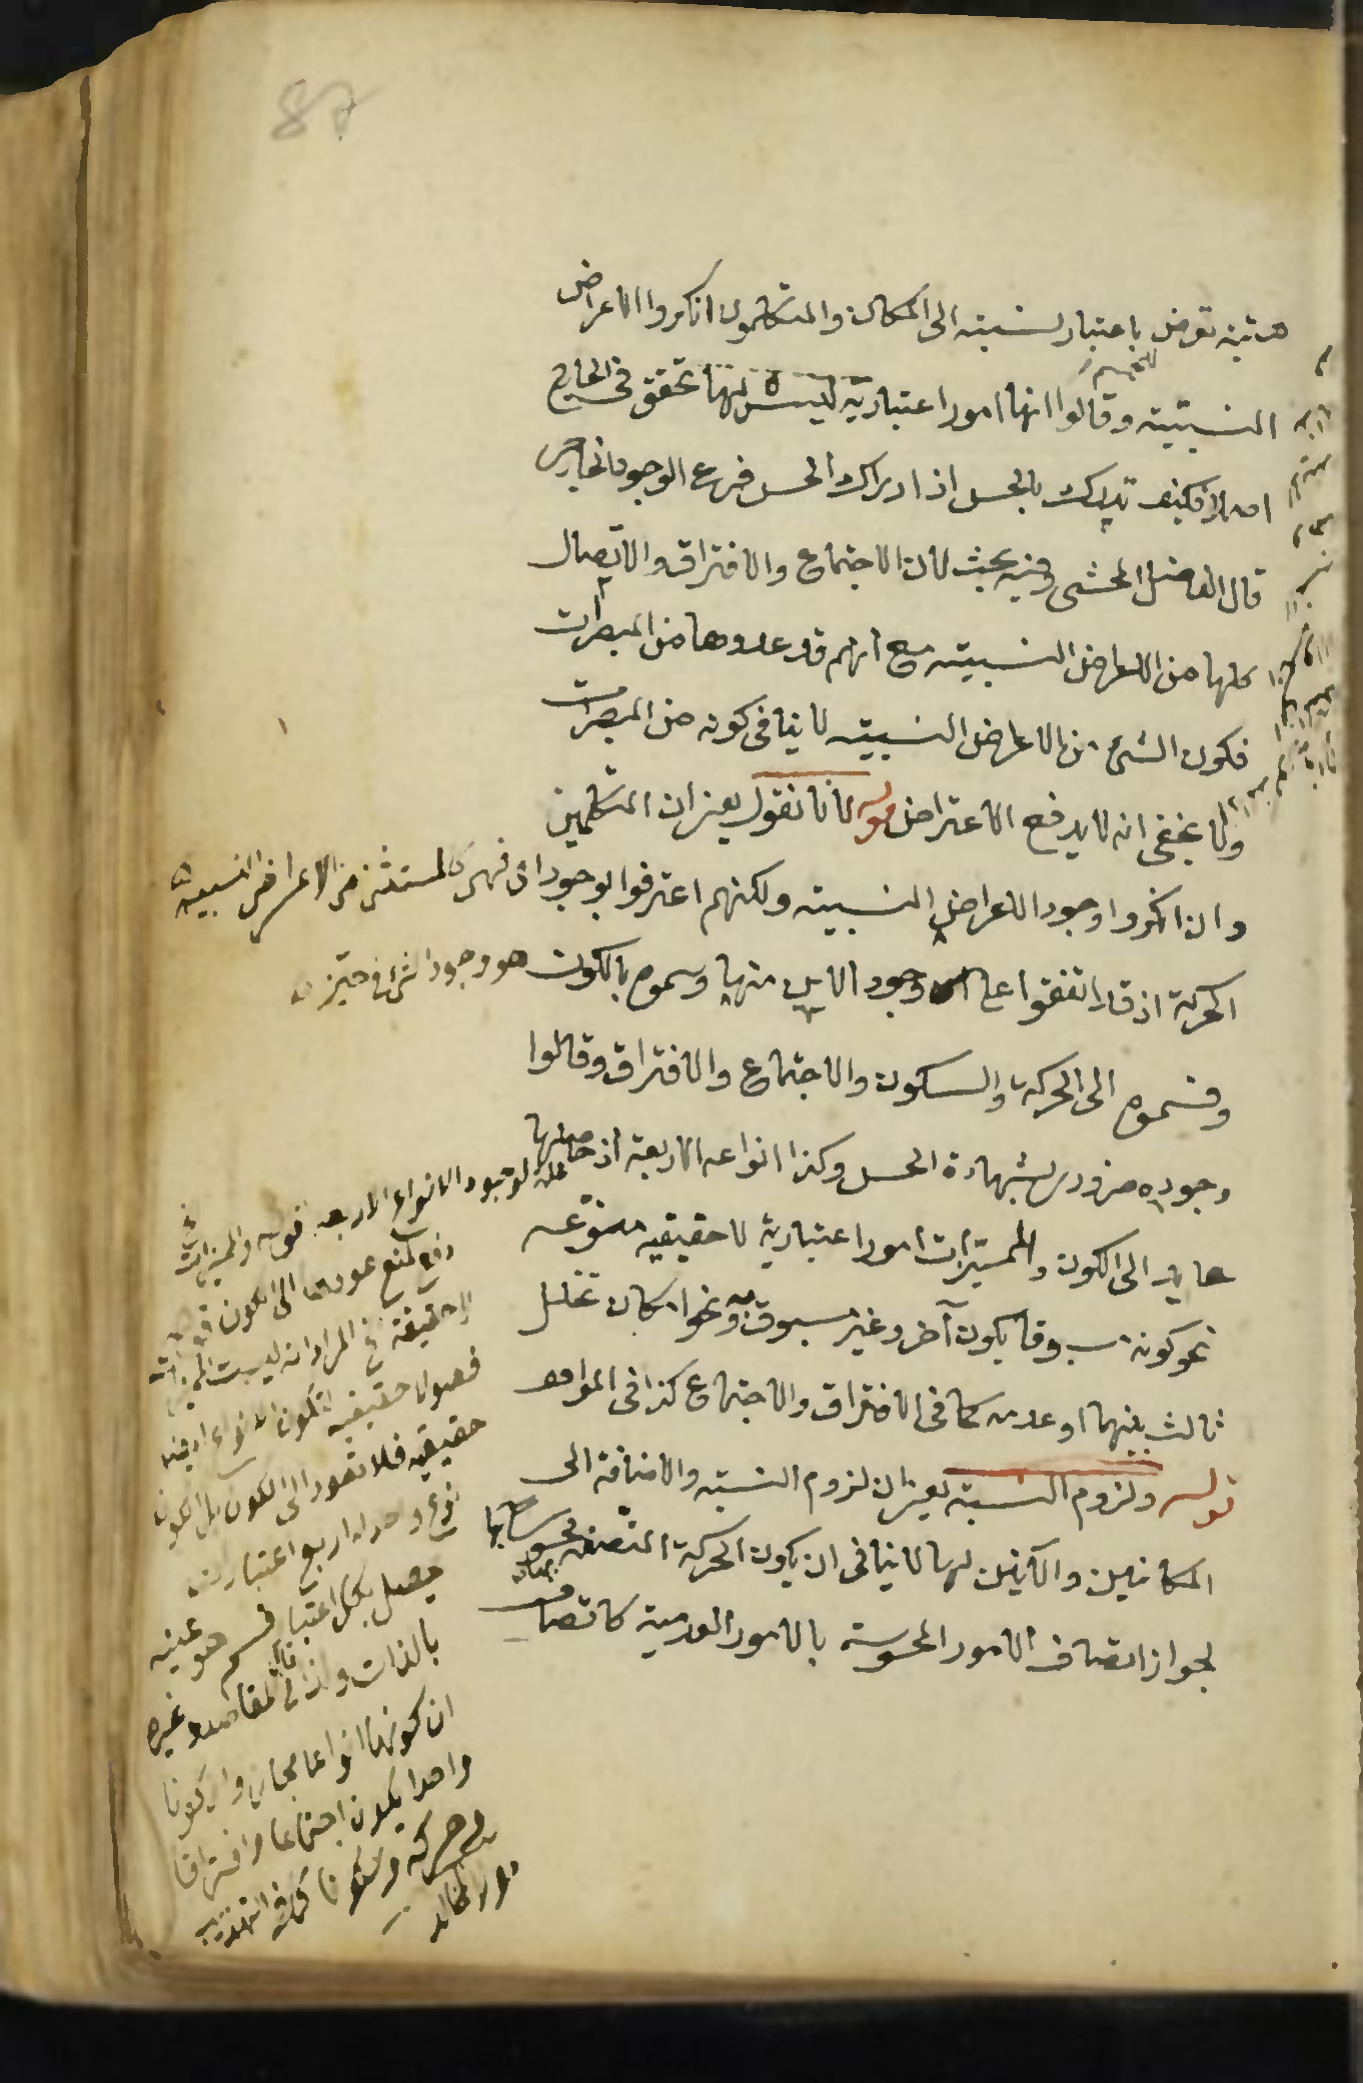 87
هيئة تعرض باعتبار نسبته الى المكان والمتكلمون انكروا الاعراض
النسبية وقالوا انها امور اعتبارية ليس لها تحقق فى الخارج
اصلا فكيف تدرك بالحس اذ ادراك الحس فرع الوجود الخارجى
قال الفاضل المحشى وفيه بحث لان الاجتماع والافتراق والاتصال
كلها من الاعراض النسبية مع انهم قد عدوها من المبصرات
فكون الشئ من الاعراض النسبية لا ينافى كونه من المبصرات
ولا يخفى انه لا يدفع الاعتراض قوله لانا نقول يعنى ان المتكلمين
وان انكروا وجود الاعراض النسبية ولكنهم اعترفوا بوجود
اى فهى كالمستثنى من الاعراض النسبية
الحركة اذ قد اتفقوا على وجود الاين منها وسموه بالكون
هو وجود الشئ فى حيز
وقسموه الى الحركة والسكون والاجتماع والافتراق وقالوا
وجوده ضرورى بشهادة الحس وكذا انواعه الاربعة اذ حاصلها
عائد الى الكون والمميزات امور اعتبارية لا حقيقية منوعه
نحو كونه مسبوقا بكون آخر وغير مسبوق به ونحو امكان تخلل
ثالث بينهما وعدمه كما فى الافتراق والاجتماع كذا فى المواقف
قوله ولزوم النسبة يعنى ان لزوم النسبة والاضافة الى
المكانين والآنين لها لا ينافى ان يكون الحركة المتصفة بها محسوسة
لجواز اتصاف الامور المحسوسة بالامور العدمية كاتصاف
علة لوجود الانواع الاربعة قوله والمميزات
دفع لمنع عودها الى الكون
لا حقيقية الخ المراد انه ليست المميزات
فصولا حقيقية لتكون الانواع ايضا
حقيقية فلا تعود الى الكون بل الكون
نوع واحد له اربع اعتبارات
يحصل بكل اعتبار قسم هو عينه
بالذات ولذا قال فى المقاصد وغيره
ان كونها انواعا مجاز وان كونا
واحدا يكون اجتماعا وافتراقا
وحركة وسكونا كما فى التهذيب